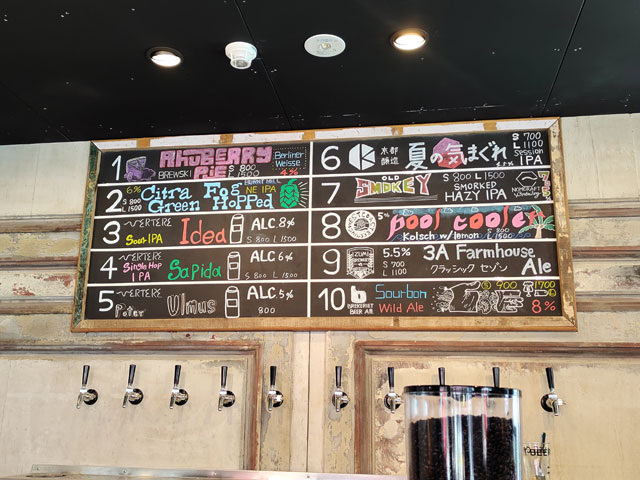 1 BREWSKI RHUBERRY PIE S 800 L 1500 Berliner Weisse 4%
2 6% S 800 L 1500 Citra Fog NE IPA
Green Hopped
3 VERTERE Sour IPA Idea ALC.8% S 800 L 1500
4 VERTERE Single Hop IPA Sapida ALC.6% S 800 L 1500
5 VERTERE Poter Ulmus ALC.5% 800
6 京都醸造 夏の気まぐれ S 700 L 1100 Session IPA
7 OLD SMOKEY S 800 L 1500
SMORKED HAZY IPA
8 5% pool cooler
Kolsch w/lemon S 800 L 1500
9 5.5% S 700 L 1100 3A Farmhouse Ale
クラシック セゾン
10 Sourbon Wild Ale 900 1700 8%